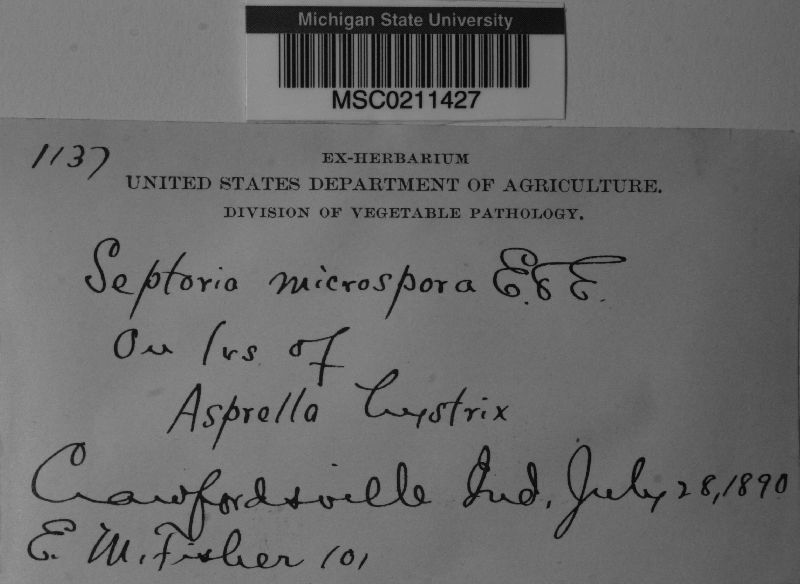 Michigan State University
MSC0211427
1137
EX-HERBARIUM
UNITED STATES DEPARTMENT OF AGRICULTURE.
DIVISION OF VEGETABLE PATHOLOGY.
Septoria microspora E. & E.
On lvs of
Asprella hystrix
Crawfordsville Ind. July 28, 1890
E. M. Fisher 101